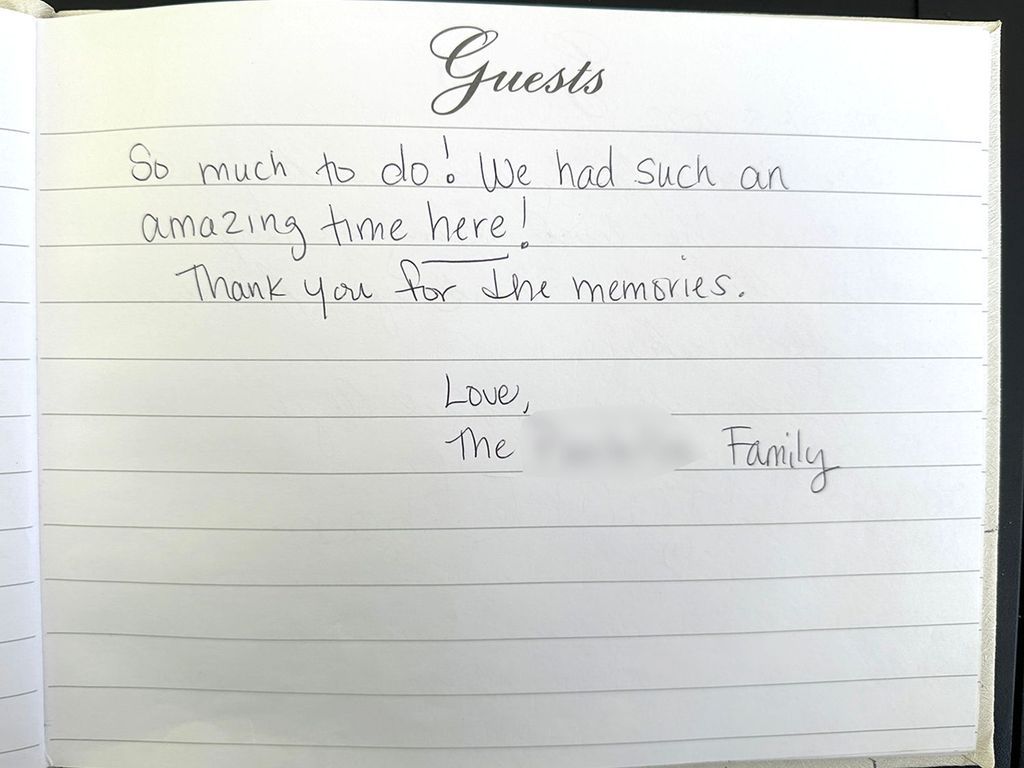 Guests
So much to do! We had such an
amazing time here!
Thank you for the memories.
Love,
The Family